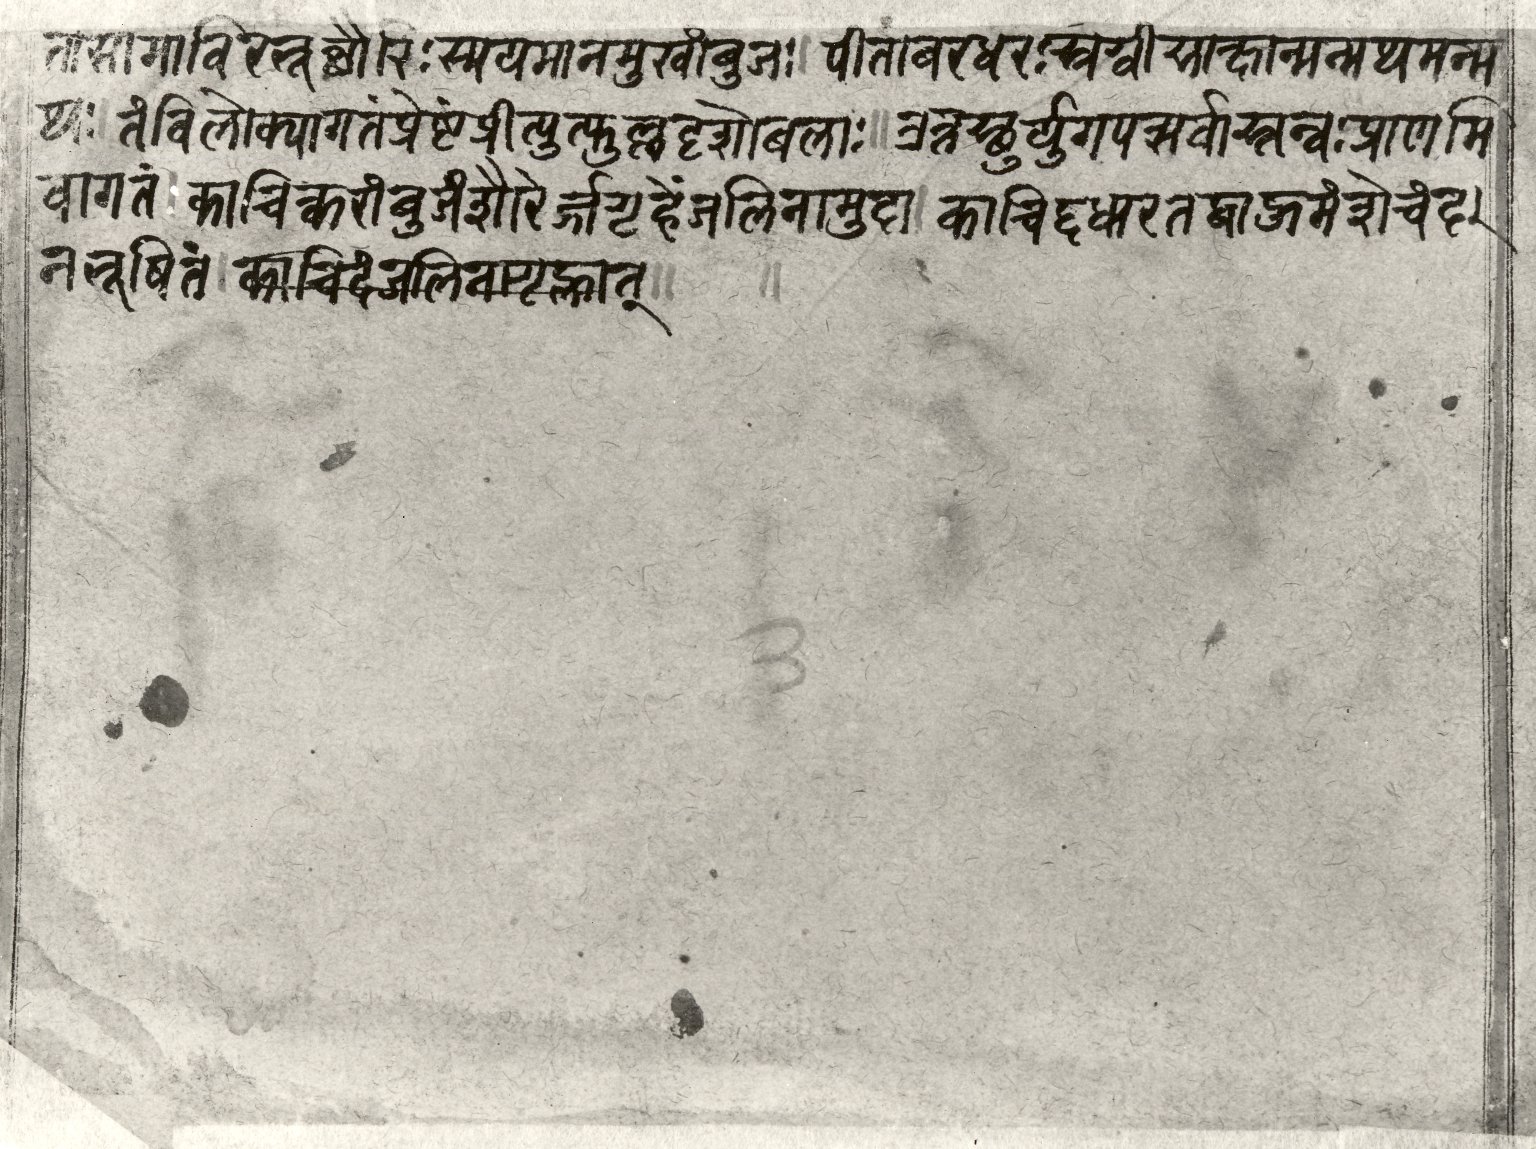 तासामाविरभूच्छौरिः स्मयमानमुखांबुजः॥ पीतांबरधरः स्रग्वी साक्षान्मन्मथमन्म
थः॥ तं विलोक्यागतं प्रेष्टं प्रीत्युत्फुल्लदृशोबलाः॥ उत्तस्थुर्युगपत्सर्वास्तन्वः प्राणमि
वागतं। काचित्करांबुजं शौरेर्जगृहेंजलिना मुदा। काचिद्दधार तद्बाहुमंशे चंद
नभूषितं। काचिदंजलिनागृह्णात्॥ ॥
3